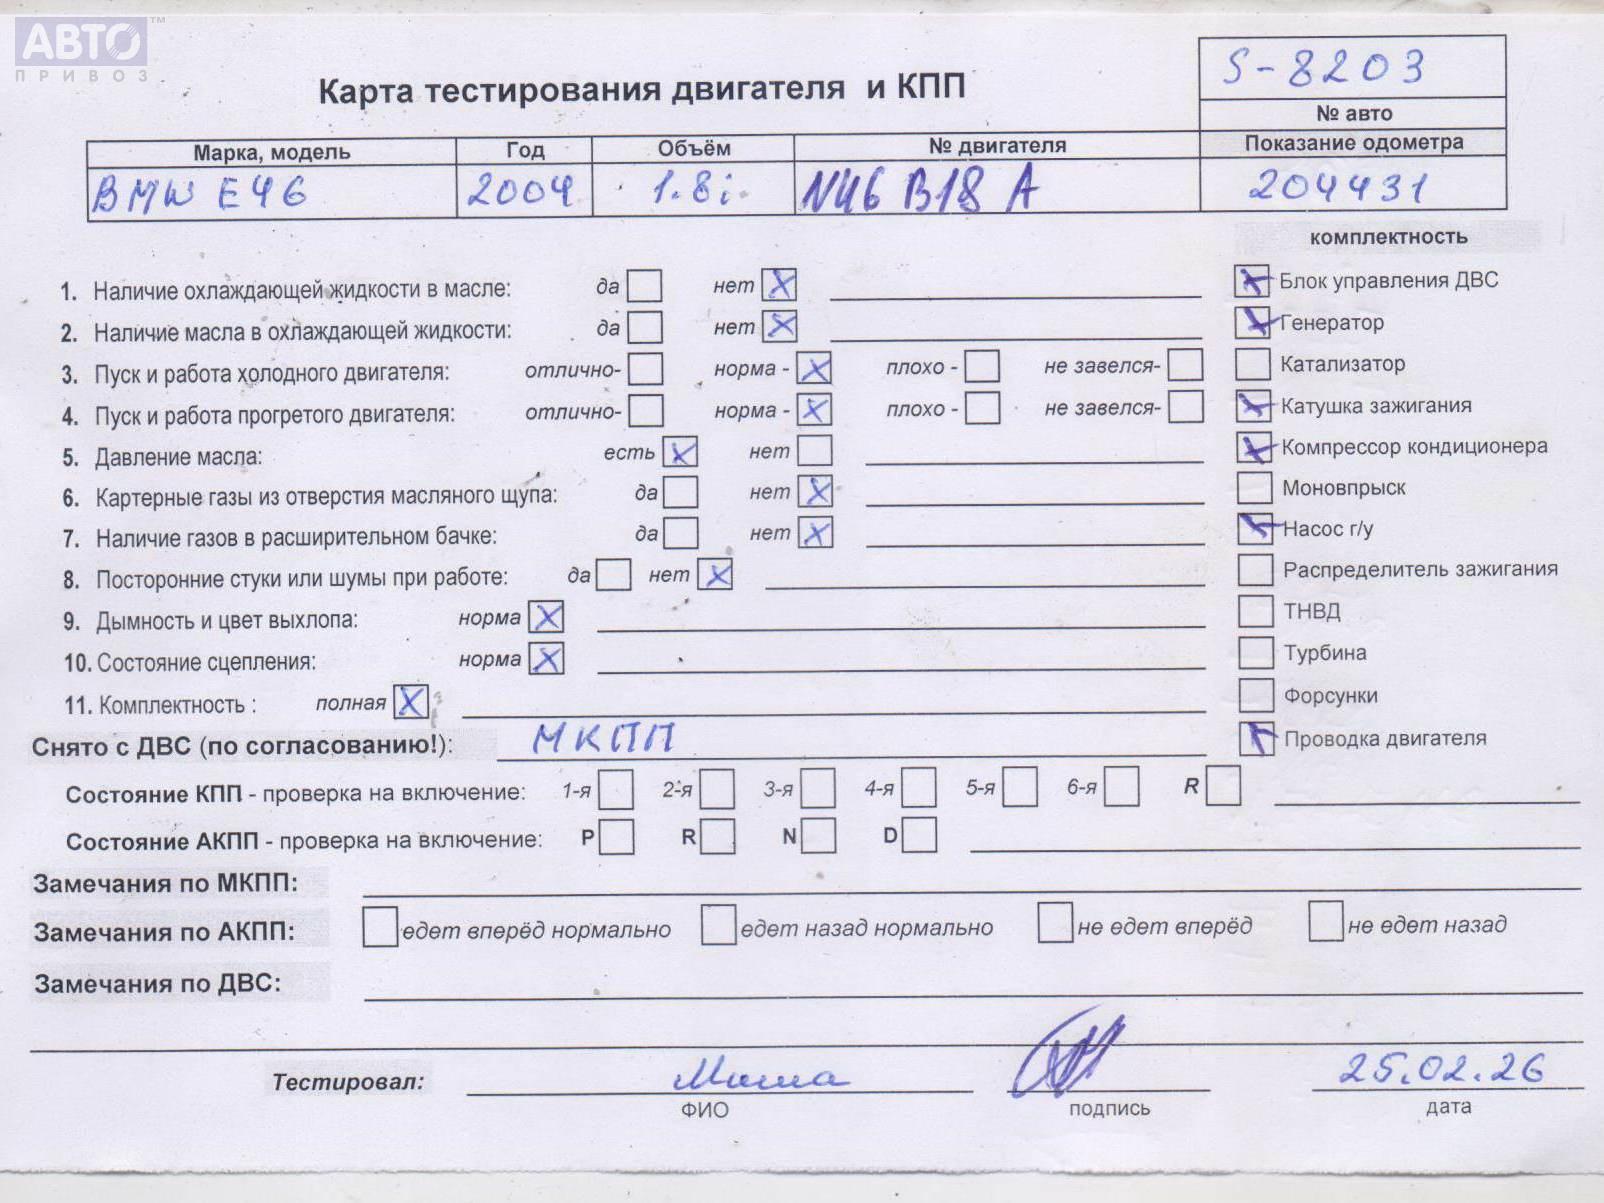 АВТО™
ПРИВОЗ
S-8203
Карта тестирования двигателя и КПП
№ авто
Марка, модель Год Объём № двигателя Показание одометра
BMW E46 2004 1.8i. N46 B18 A 204431
комплектность
1. Наличие охлаждающей жидкости в масле: да нет X
2. Наличие масла в охлаждающей жидкости: да нет X
3. Пуск и работа холодного двигателя: отлично- норма - X плохо - не завелся-
4. Пуск и работа прогретого двигателя: отлично- норма - X плохо - не завелся-
5. Давление масла: есть X нет
6. Картерные газы из отверстия масляного щупа: да нет X
7. Наличие газов в расширительном бачке: да нет X
8. Посторонние стуки или шумы при работе: да нет X
9. Дымность и цвет выхлопа: норма X
10. Состояние сцепления: норма X
11. Комплектность : полная X
X Блок управления ДВС
X Генератор
Катализатор
X Катушка зажигания
X Компрессор кондиционера
Моновпрыск
X Насос г/у
Распределитель зажигания
ТНВД
Турбина
Форсунки
X Проводка двигателя
Снято с ДВС (по согласованию!): МКПП
Состояние КПП - проверка на включение: 1-я 2-я 3-я 4-я 5-я 6-я R
Состояние АКПП - проверка на включение: P R N D
Замечания по МКПП:
Замечания по АКПП: едет вперёд нормально едет назад нормально не едет вперёд не едет назад
Замечания по ДВС:
Тестировал: Миша 25.02.26
ФИО подпись дата